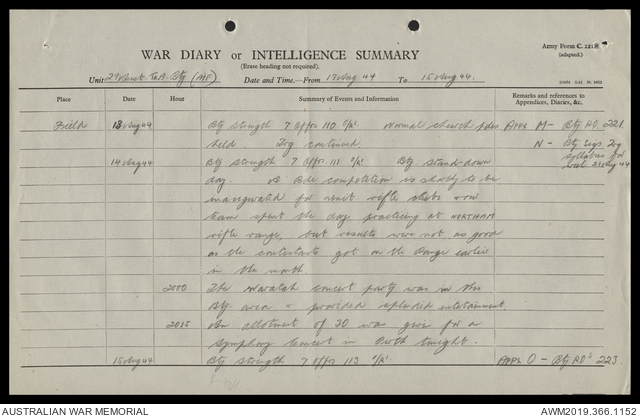 WAR DIARY or INTELLIGENCE SUMMARY
(Erase heading not required).
Army Form C. 2118
(adapted).
Unit Bty (AIF) Date and Time.—From 13 Aug 44 To 15 Aug 44.
Place Date Hour Summary of Events and Information Remarks and references to Appendices, Diaries, &c.
Field 13 Aug 44 Bty strength 7 Offrs 110 O/R'. Normal church pdes Appx M — Bty RO 221
held. Trg continued. N — Bty Trg
14 Aug 44 Bty strength 7 Offrs 111 O/R'. Bty stand-down syllabus for
day. A Bde competition is shortly to be week 21 Aug 44
inaugurated for unit rifle shots
team spent the day practising at NORTHAM
rifle range, but results were not as good
as the contestants got on the Range earlier
in the month
2000 The Waratah concert party was in the
Bty area & provided splendid entertainment.
2015 An allotment of 30 was given for a
Symphony Concert in Perth tonight.
15 Aug 44 Bty strength 7 Offrs 113 O/R'. Appx O — Bty RO's 223
AUSTRALIAN WAR MEMORIAL
AWM2019.366.1152